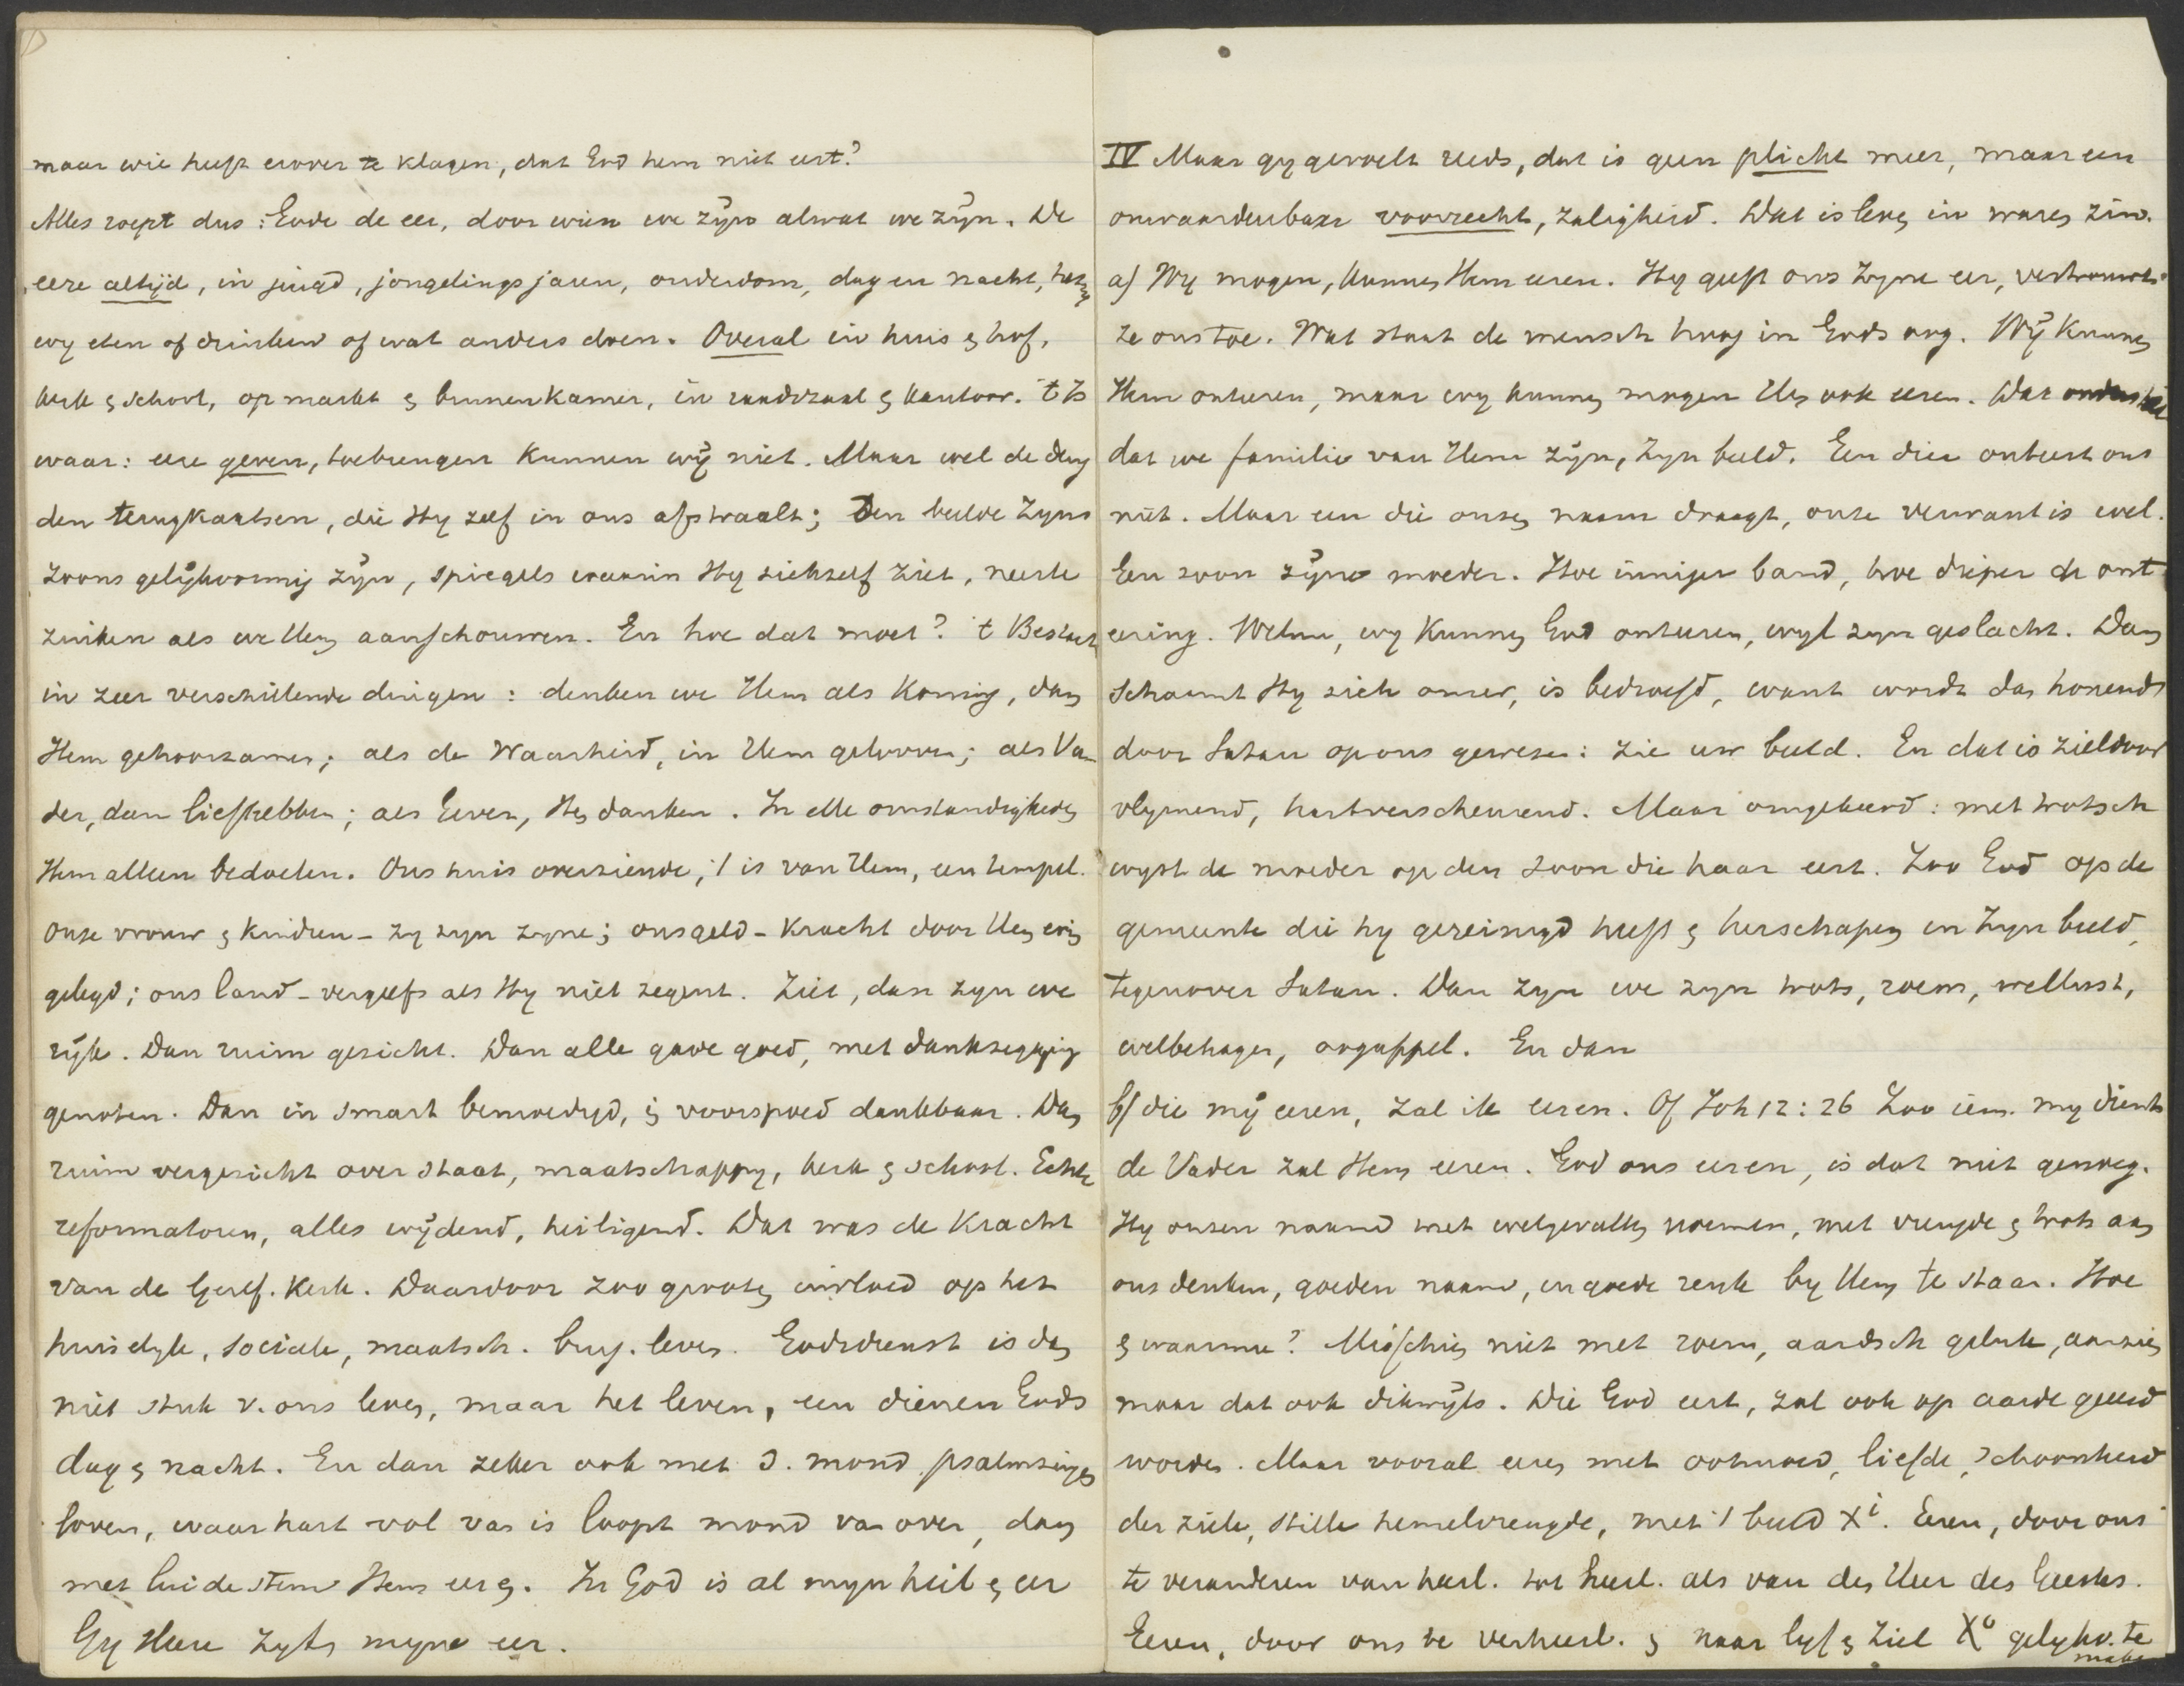 maar wie heeft erover te klagen, dat God hem niet eert?
Alles roept dus: Gode de eer, door wien we zijn alwat we zijn. De
eere altijd, in jeugd, jongelingsjaren, ouderdom, dag en nacht, hetzij
wy eten of drinken of wat anders doen. Overal in huis & hof,
kerk & school, op markt & binnenkamer, in raadzaal & kantoor. 't Is
waar: eere geven, toebrengen kunnen wij niet. Maar wel de
den terugkaatsen, die Hy zelf in ons afstraalt; Den beelde Zyns
Zoons gelijkvormig zijn, spiegels waarin Hy zichzelf ziet, neer te
zinken als we Hem aanschouwen. En hoe dat moet? 't Bestaat
in zeer verschillende dingen: denken we Hem als Koning, dan
Hem gehoorzamen; als de Waarheid, in Hem gelooven; als Va-
der, dan liefhebben; als Gever, Hem danken. In elke omstandigheden
Hem alleen bedoelen. Ons huis overziende, 't is van Hem, een tempel.
onze vrouw & kinderen - zy zyn zyne; ons geld - kracht door Hem erin
gelegd; ons land - vergeefs als Hy niet zegent. Ziet, dan zyn we
rijk. Dan ruim gezicht. Dan alle gave goed, met dankzegging
genoten. Dan in smart bemoedigd, in voorspoed dankbaar. Dan
ruim vergezicht over staat, maatschappy, kerk & school. Echte
reformatoren, alles wijdend, heiligend. Dat was de kracht
van de Geref. Kerk. Daardoor zoo grooten invloed op het
huiselyk, sociale, maatsch. burg. leven. Godsdienst is dan
niet stuk v. ons leven, maar het leven, een dienen Gods
dag & nacht. En dan zeker ook met d. mond psalmzingen
loven, waar hart vol van is loopt mond van over, dan
met luide stem Hem eeren. In God is al myn heil & eer
Gy Heere zyt myne eer.
IV Maar gy gevoelt reeds, dat is geen plicht meer, maar een
onwaardeerbaar voorrecht, zaligheid. Dat is leven in waren zin.
a) Wy mogen, kunnen Hem eeren. Hy geeft ons Zyne eer, vertrouwt
ze ons toe. Wat staat de mensch hoog in Gods oog. Wij kunnen
Hem onteeren, maar wy kunnen mogen Hem ook eeren. Dat
dat we familie van Hem zijn, Zyn beeld. Een dier onteert ons
niet. Maar een die onzen naam draagt, onze verwant is wel.
Een zoon zijne moeder. Hoe inniger band, hoe dieper de ont
eering. Welnu, wy kunnen God onteeren, wyl zyn geslacht. Dan
schaamt Hy zich onzer, is bedroefd, want wordt dan honend
door Satan op ons gewezen: zie uw beeld. En dat is zieldoor
vlymend, hartverscheurend. Maar omgekeerd: met trotsch
wyst de moeder op den zoon die haar eert. Zoo God op de
gemeente die hy gereinigd heeft & herschapen in Zyn beeld,
tegenover Satan. Dan zyn we zyn trots, roem, wellust,
welbehagen, oogappel. En dan
b) die mij eeren, zal ik eeren. Of Joh 12:26 Zoo iem. my dient
de Vader zal Hem eeren. God ons eeren, is dat niet genoeg.
Hy onzen naam met welgevallen noemen, met vreugde & trots aan
ons denken, goeden naam, in goede reuk by Hem te staan. Hoe
& waarmee? Misschien niet met roem, aardsch geluk, aanzien
maar dat ook dikwijls. Die God eert, zal ook op aarde geeerd
worden. Maar vooral eeren met ootmoed, liefde, schoonheid
der ziele, stille hemelvreugde, met 't beeld Xi. Eeren, door ons
te veranderen van heerl. tot heerl. als van des Heer des Geestes.
Eeren, door ons te verheerl. & naar lyf & ziel Xo gelykv. te
maken